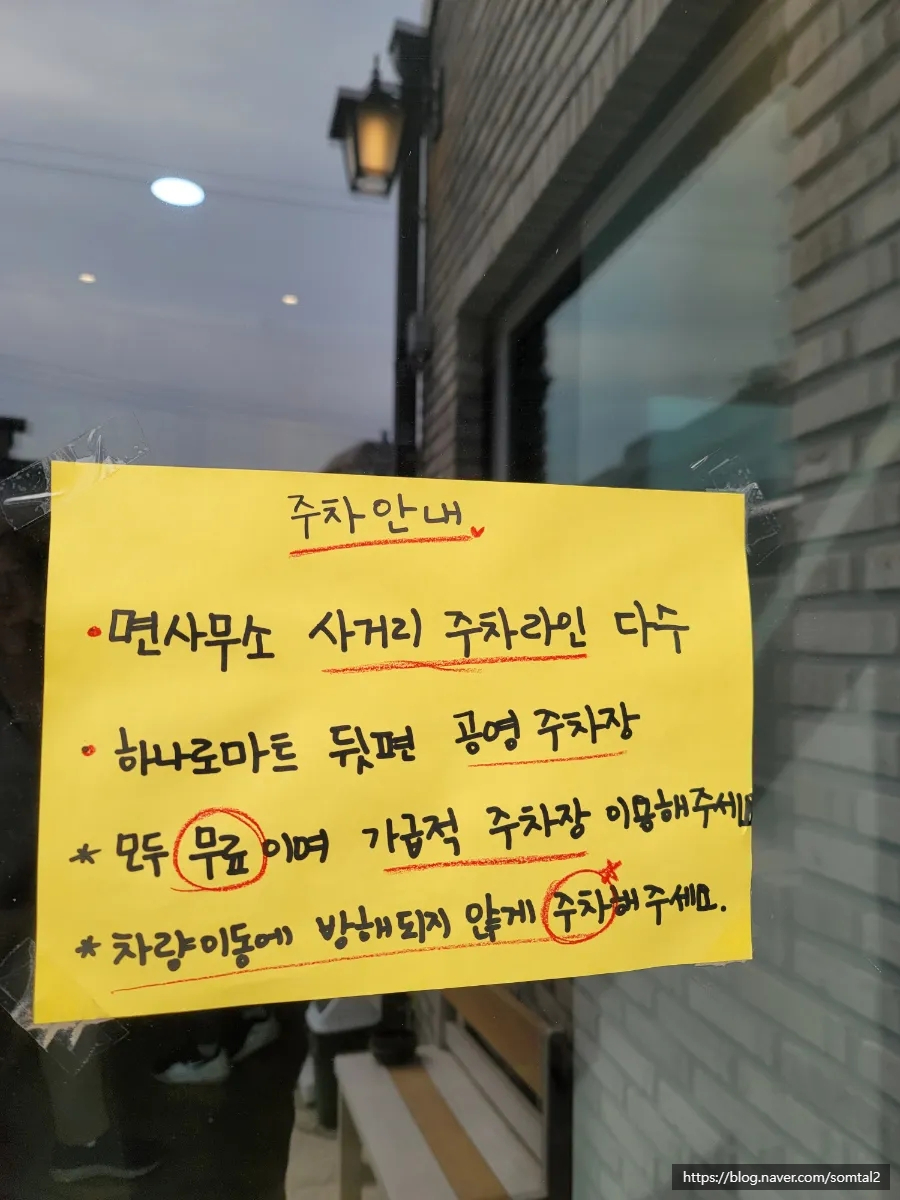 주차안내
• 면사무소 사거리 주차라인 다수
• 하나로마트 뒷편 공영 주차장
* 모두 무료이며 가급적 주차장 이용해주세요
* 차량이동에 방해되지 않게 주차해주세요.
https://blog.naver.com/somtal2